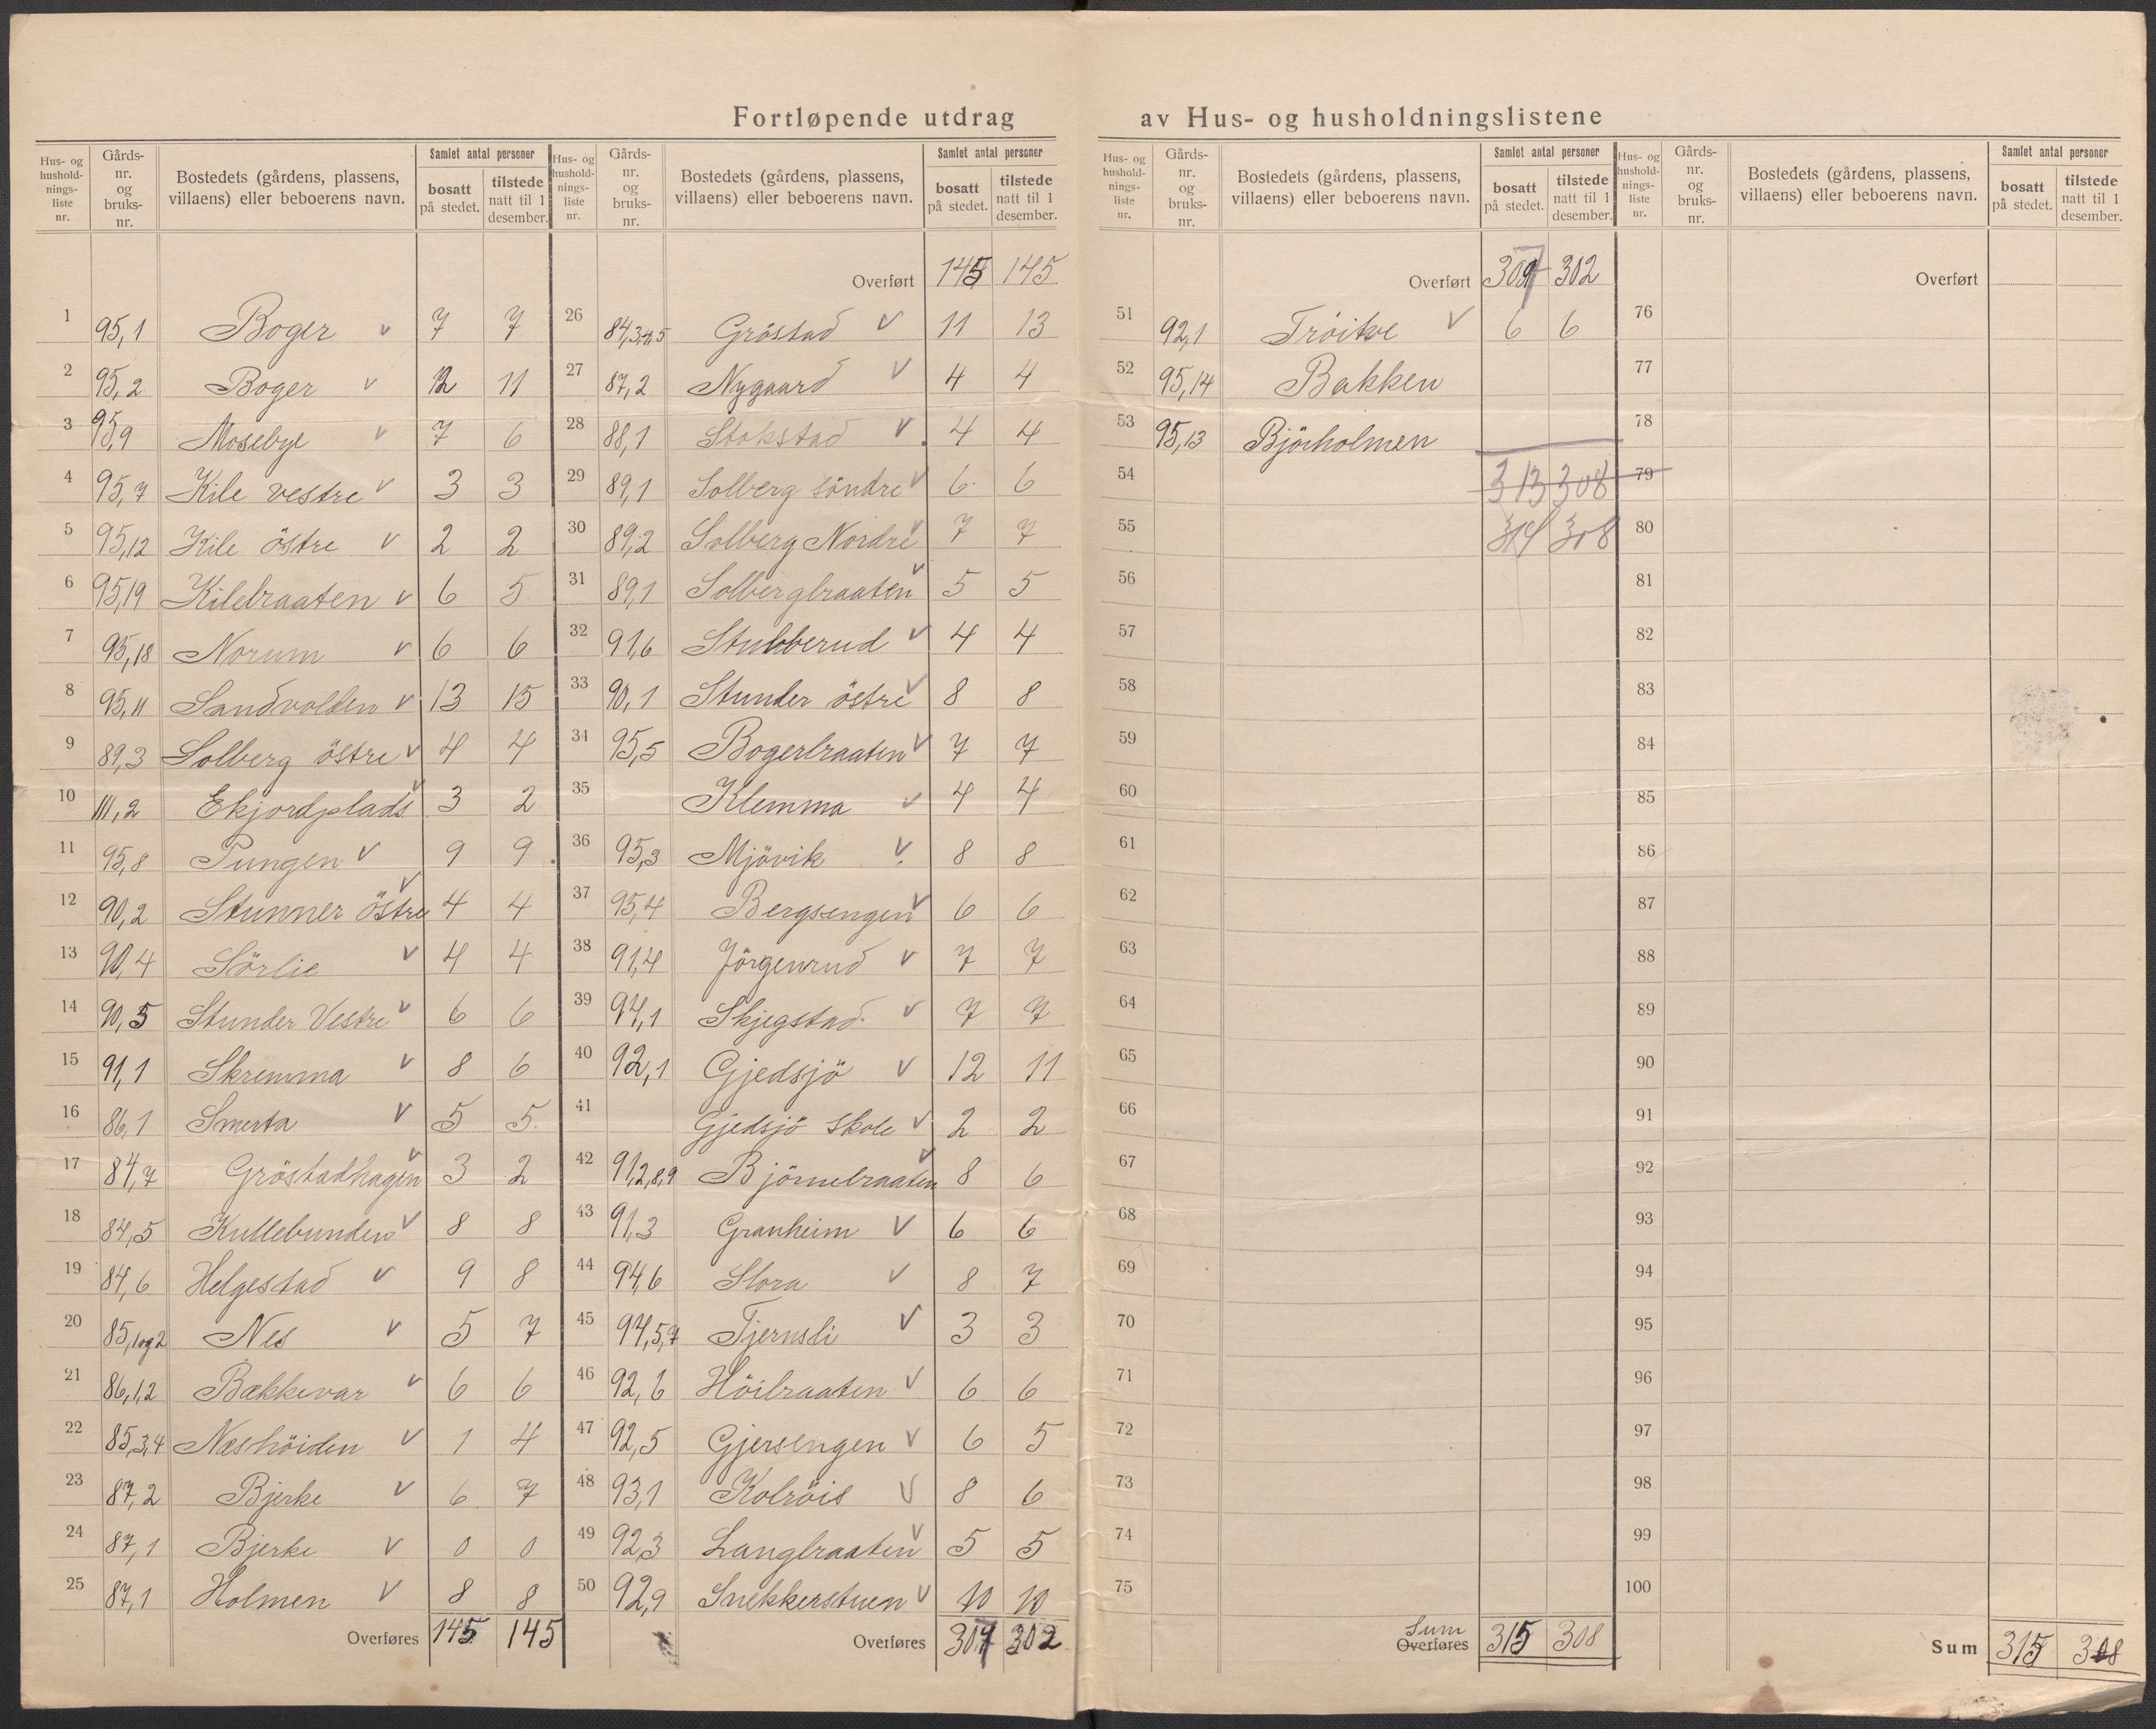 Fortløpende utdrag av Hus- og husholdningslistene
Hus- og husholdnings-liste nr. Gårds-nr. og bruks-nr. Bostedets (gårdens, plassens, villaens) eller beboerens navn. Samlet antal personer bosatt på stedet. tilstede natt til 1 desember.
1 95,1 Boger v 7 7
2 95,2 Boger v 12 11
3 95,9 Mosebye v 7 6
4 95,7 Kile vestre v 3 3
5 95,12 Kile östre v 2 2
6 95,19 Kilebraaten v 6 5
7 95,18 Norum v 6 6
8 95,11 Sandvolden v 13 15
9 89,3 Solberg östre v 4 4
10 111,2 Ekjordplads v 3 2
11 95,8 Pungen v 9 9
12 90,2 Stunner östre v 4 4
13 90,4 Sörlie v 4 4
14 90,5 Stunder Vestre v 6 6
15 91,1 Skremma v 8 6
16 86,1 Smerta v 5 5
17 84,7 Gröstadhagen v 3 2
18 84,5 Kullebunden v 8 8
19 84,6 Helgestad v 9 8
20 85,1og2 Nes v 5 7
21 86,1,2 Bækkevar v 6 6
22 85,3,4 Næshöiden v 1 4
23 87,2 Bjerke v 6 7
24 87,1 Bjerke v 0 0
25 87,1 Holmen v 8 8
Overføres 145 145
Hus- og husholdnings-liste nr. Gårds-nr. og bruks-nr. Bostedets (gårdens, plassens, villaens) eller beboerens navn. Samlet antal personer bosatt på stedet. tilstede natt til 1 desember.
Overført 145 145
26 84,3,4,5 Gröstad v 11 13
27 87,2 Nygaard v 4 4
28 88,1 Stokstad v 4 4
29 89,1 Solberg söndre v 6 6
30 89,2 Solberg Nordre v 7 7
31 89,1 Solbergbraaten v 5 5
32 91,6 Stubberud v 4 4
33 90,1 Stunder östre v 8 8
34 95,5 Bogerbraaten v 7 7
35 Klemma v 4 4
36 95,3 Mjövik v 8 8
37 95,4 Bergsengen v 6 6
38 91,4 Jörgenrud v 7 7
39 94,1 Skjegstad v 7 7
40 92,1 Gjedsjö v 12 11
41 Gjedsjö skole v 2 2
42 91,2,8,9 Björnebraaten v 8 6
43 91,3 Granheim v 6 6
44 94,6 Slora v 8 7
45 94,5,7 Tjernsli v 3 3
46 92,6 Höibraaten v 6 6
47 92,5 Gjersengen v 6 5
48 93,1 Kolröis v 8 6
49 92,3 Langbraaten v 5 5
50 92,9 Snekkerstuen v 10 10
Overføres 309 302
Hus- og husholdnings-liste nr. Gårds-nr. og bruks-nr. Bostedets (gårdens, plassens, villaens) eller beboerens navn. Samlet antal personer bosatt på stedet. tilstede natt til 1 desember.
Overført 309 302
51 92,1 Tröitve v 6 6
52 95,14 Bakken
53 95,13 Björholmen
54 313 308
55 314 308
56
57
58
59
60
61
62
63
64
65
66
67
68
69
70
71
72
73
74
75
Sum
Overføres 315 308
Hus- og husholdnings-liste nr. Gårds-nr. og bruks-nr. Bostedets (gårdens, plassens, villaens) eller beboerens navn. Samlet antal personer bosatt på stedet. tilstede natt til 1 desember.
Overført
76
77
78
79
80
81
82
83
84
85
86
87
88
89
90
91
92
93
94
95
96
97
98
99
100
Sum 315 308